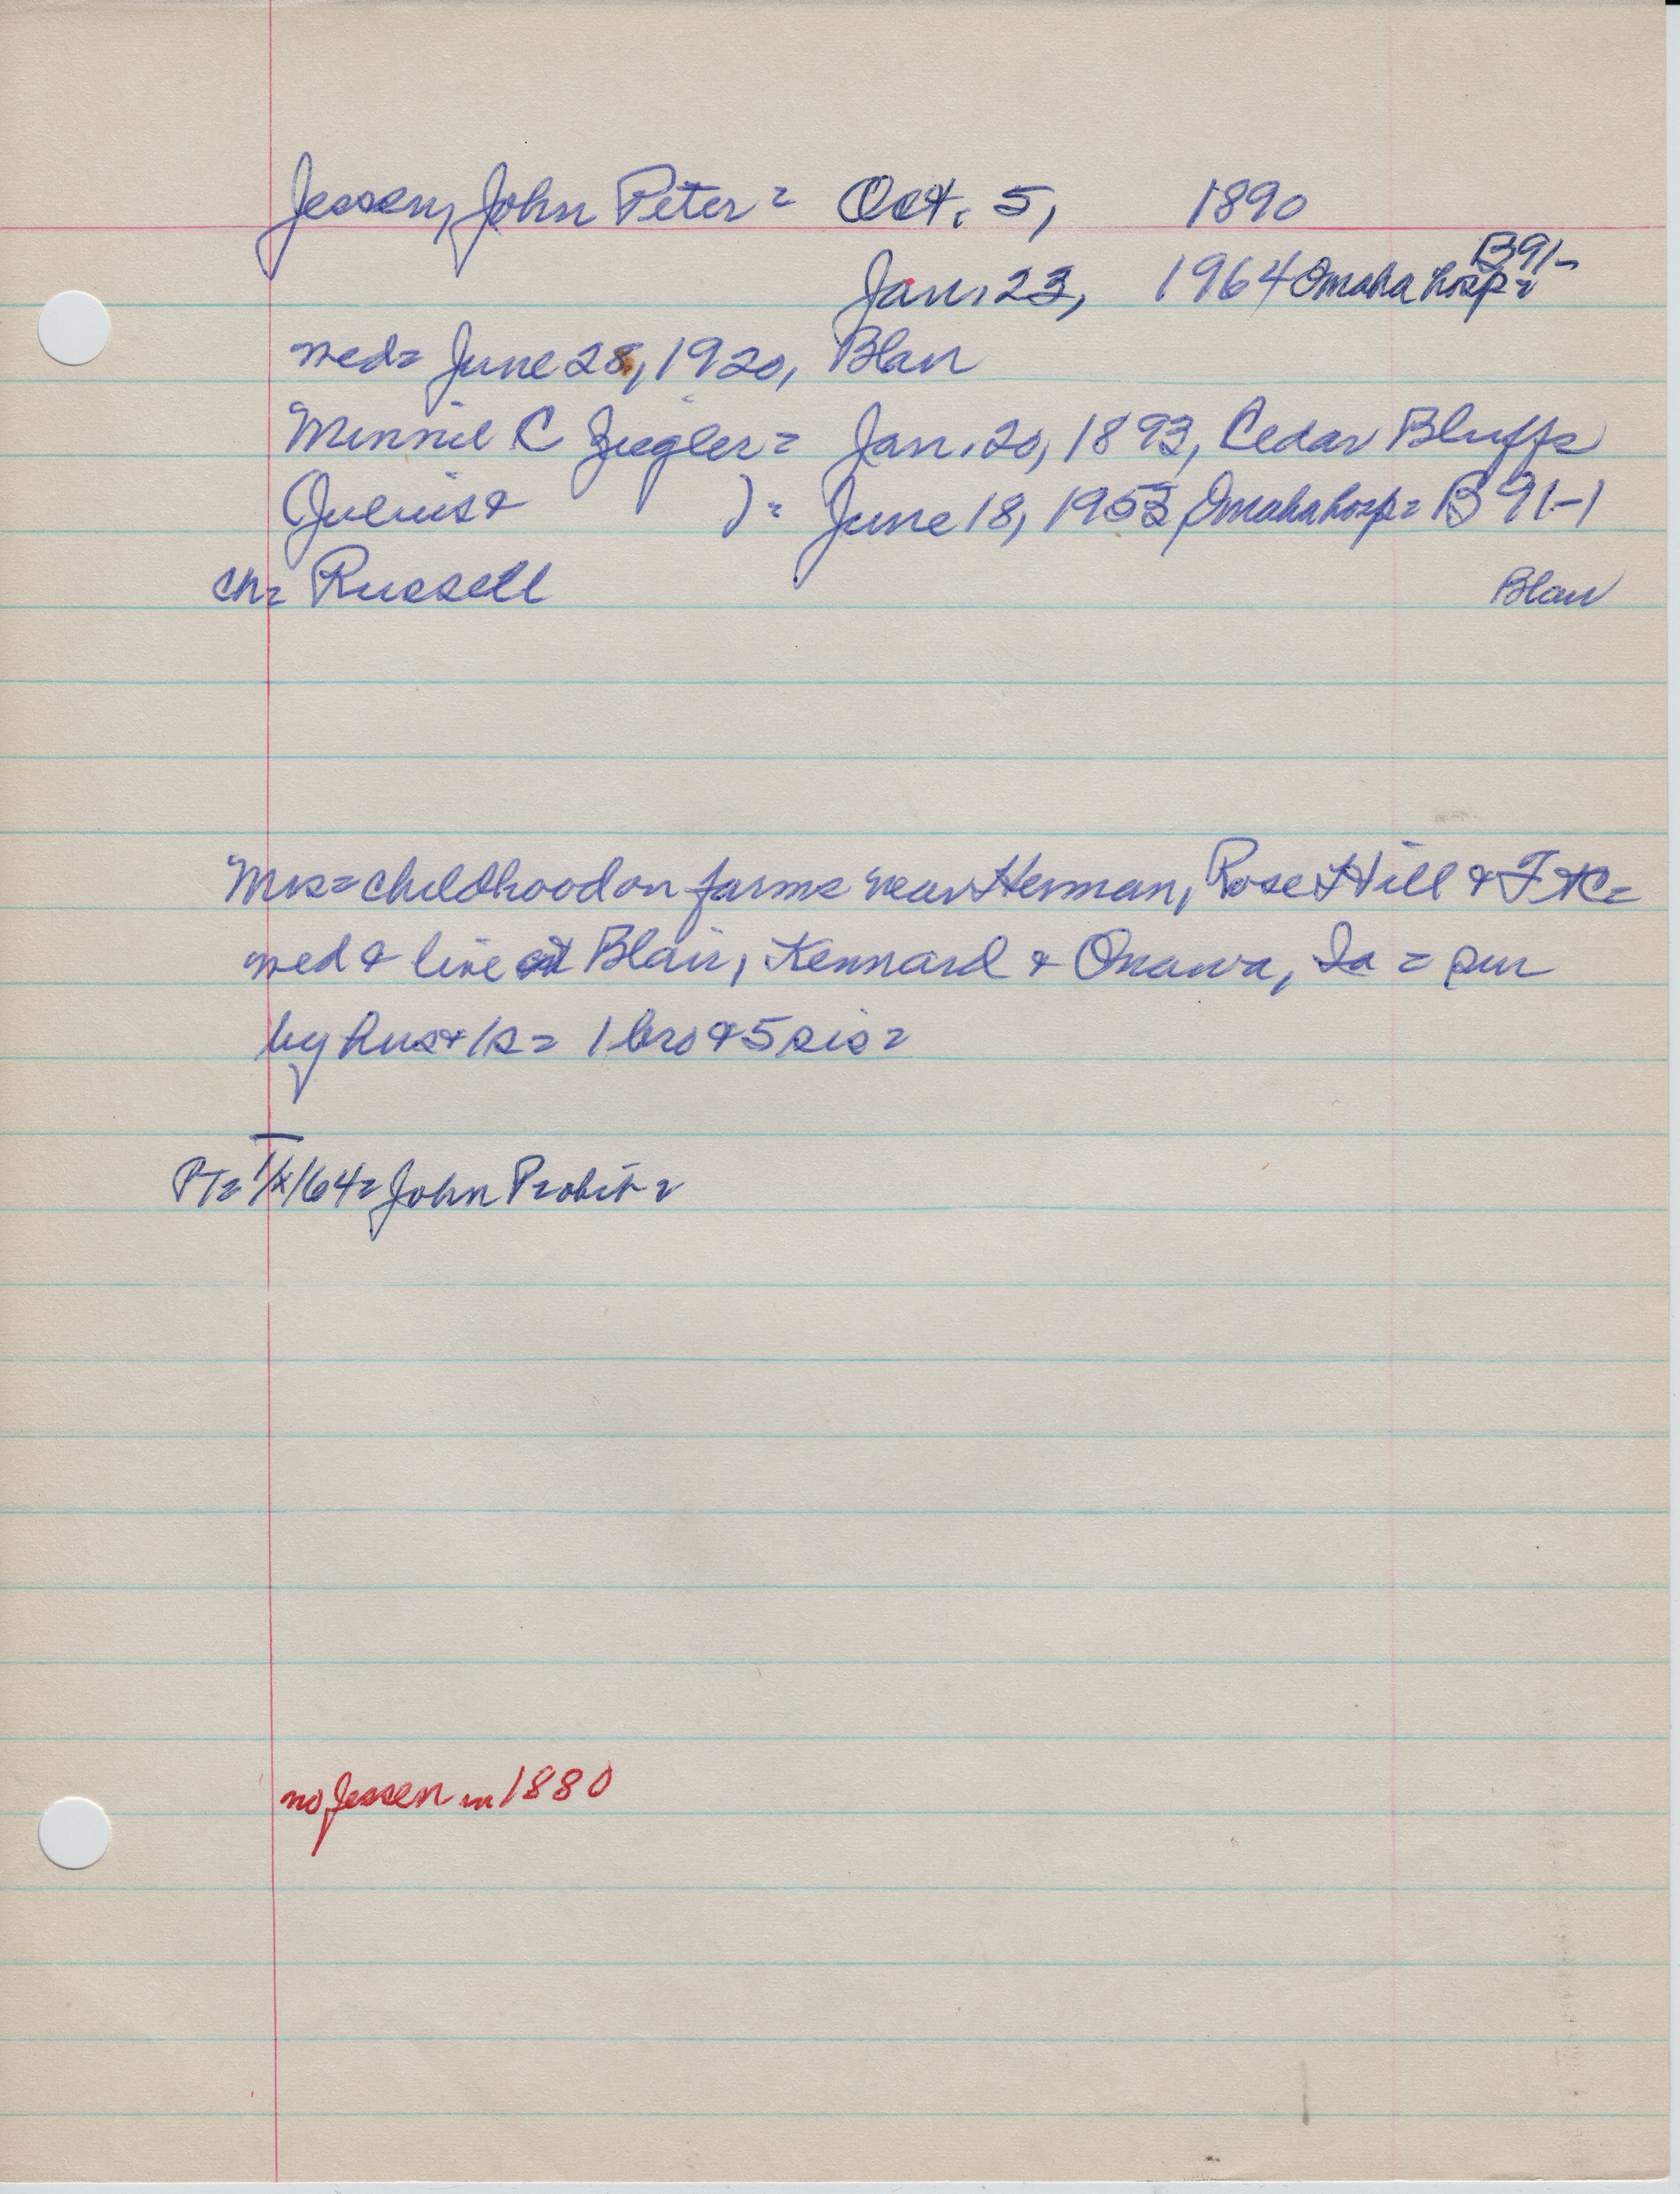 Jessen, John Peter = Oct. 5, 1890
B91-
Jan. 23, 1964 Omaha hosp =
med = June 28, 1920, Blair
Minnie C Ziegler = Jan. 20, 1893, Cedar Bluffs
(Julius & ) = June 18, 1953, Omaha hosp = B 91-1
ch = Russell Blair
Mrs = childhood on farms near Herman, Rose Hill & Ft C =
med & live at Blair, Kennard & Onawa, Ia = sur
by hus & 1s = 1 bro & 5 sis =
PT = 1/ /64 = John P obit =
no Jessen in 1880